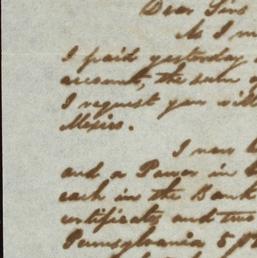 Dear Sirs
As I
I paid yesterday
account, the sum of
I request you will
Mexico.
I now
and a Power in
each in the Bank
certificates and two
Pennsylvania 5 p